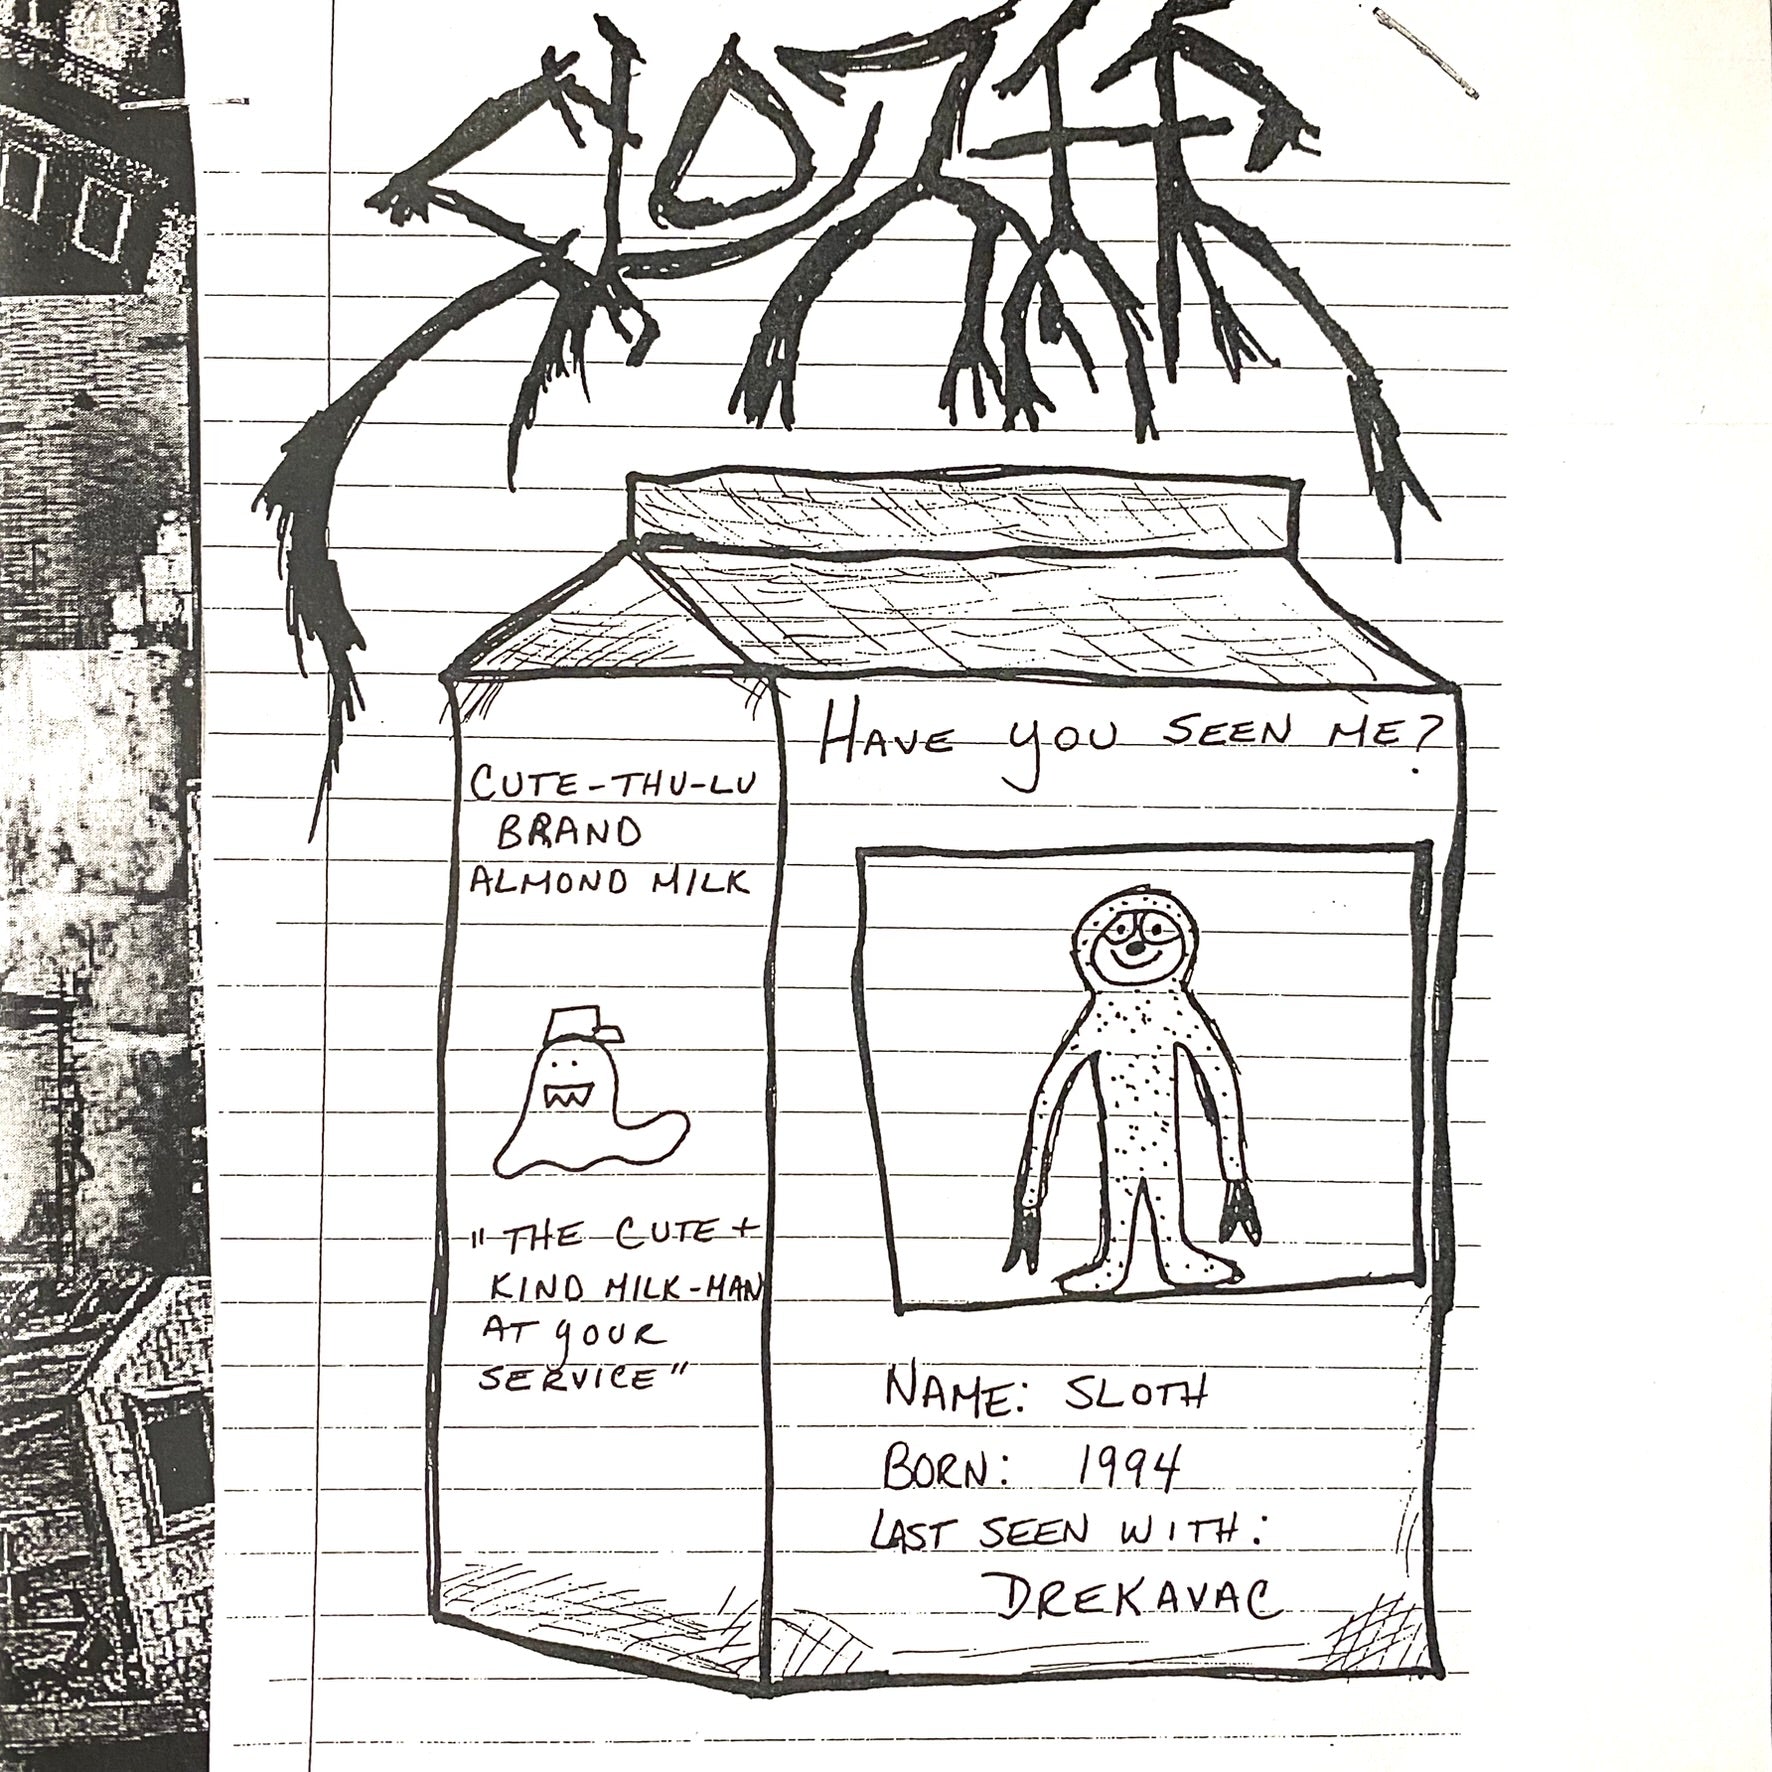 SLOTH
HAVE YOU SEEN ME?
CUTE-THU-LU
BRAND
ALMOND MILK
"THE CUTE +
KIND MILK-MAN
AT YOUR
SERVICE"
NAME: SLOTH
BORN: 1994
LAST SEEN WITH:
DREKAVAC